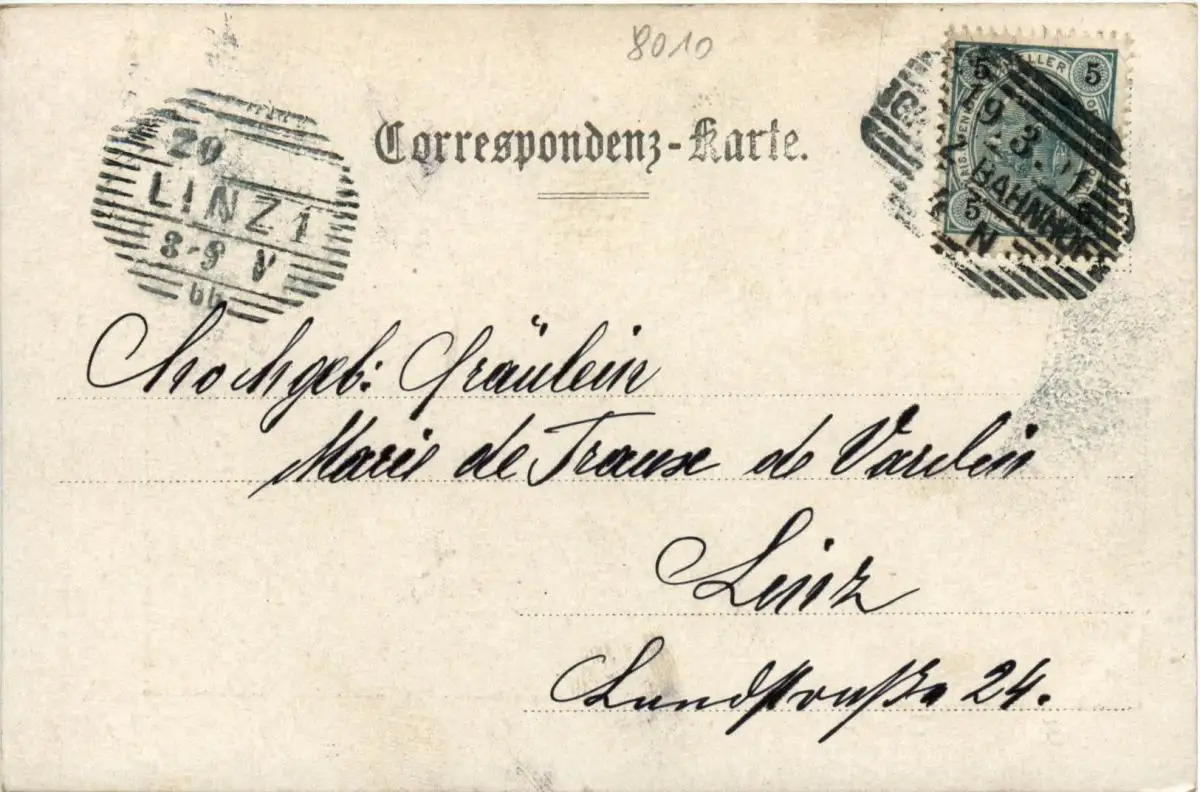 8010
Correspondenz-Karte.
5 HELLER 5
5
19 3. 01
BAHNHOF
20
LINZ 1
8-9 V
Hochgeb: Fräulein
Marie de Traux de Vardin
Linz
Landstraße 24.